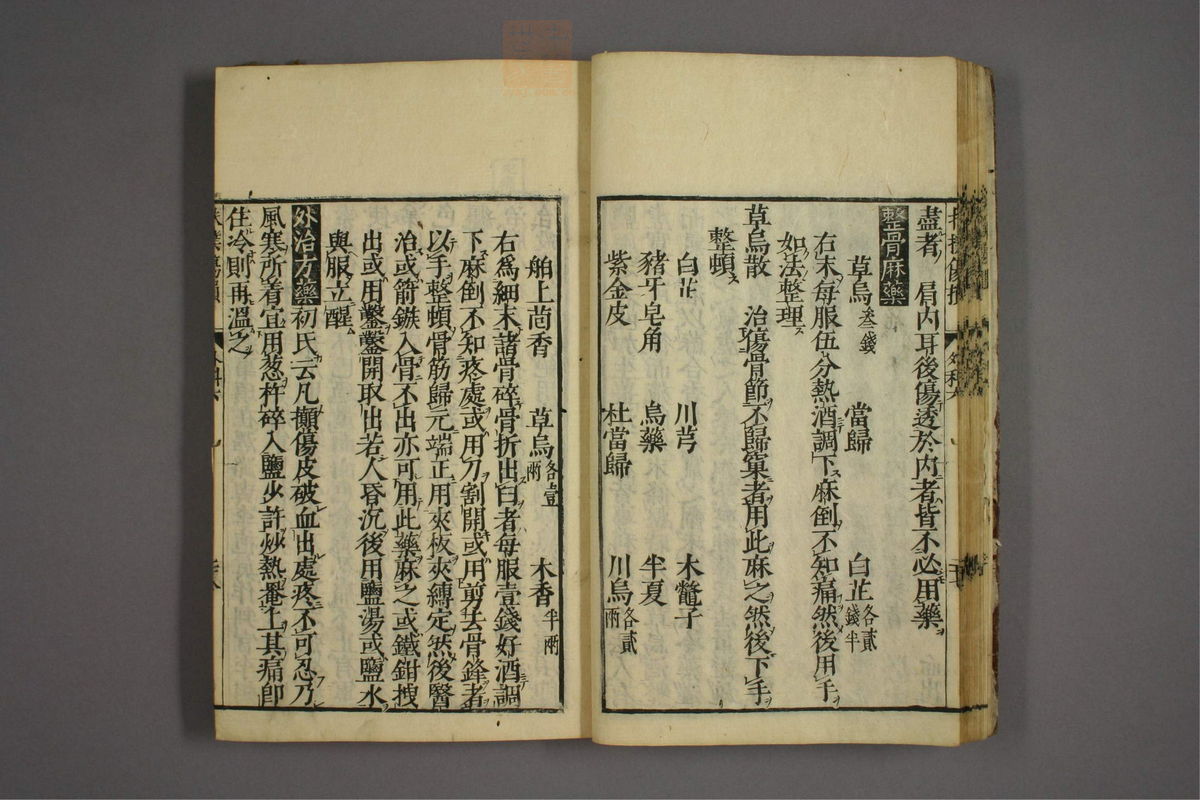 盡者 肩内耳後傷透於内者皆不必用藥
整骨麻藥
草烏叁錢 當歸 白芷各貳錢半
右末每服伍分熱酒調下麻倒不知痛然後用手
如法整理
草烏散 治傷骨節不歸窠者用此麻之然後下手
整頓
白芷 川芎 木鼈子
豬牙皂角 烏藥 半夏
紫金皮 杜當歸 川烏各貳兩
舶上茴香 草烏各壹兩 木香半兩
右爲細末諸骨碎骨折出臼者每服壹錢好酒調
下麻倒不知疼處或用刀割開或用剪去骨鋒者
以手整頓骨筋歸元端正用夾板夾縛定然後醫
治或箭鏃入骨不出亦可用此藥麻之或鐵鉗拽
出或用鑿鑿開取出若人昏沉後用鹽湯或鹽水
與服立醒
外治方藥 初氏云凡攧傷皮破血出處疼不可忍乃
風寒所着宜用葱杵碎入鹽少許炒熱罨上其痛卽
住冷則再溫之